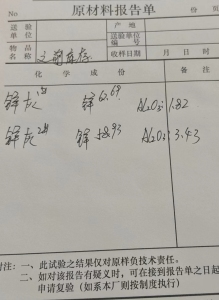 原材料报告单
No
份
送验单位
产地
送验单位编号
物品名称
收样日期
月 日 时
化学成份
备注
锌灰 1# 锌 62.69 Al2O3: 1.82
锌灰 2# 锌 58.93 Al2O3: 3.43
附注:一、此试验之结果仅对原样负技术责任。
二、如对该报告有疑义时,可在接到报告单之日起
申请复验(如系本厂则按制度执行)